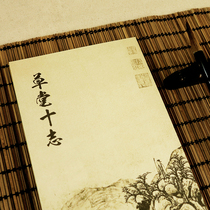 草堂十志